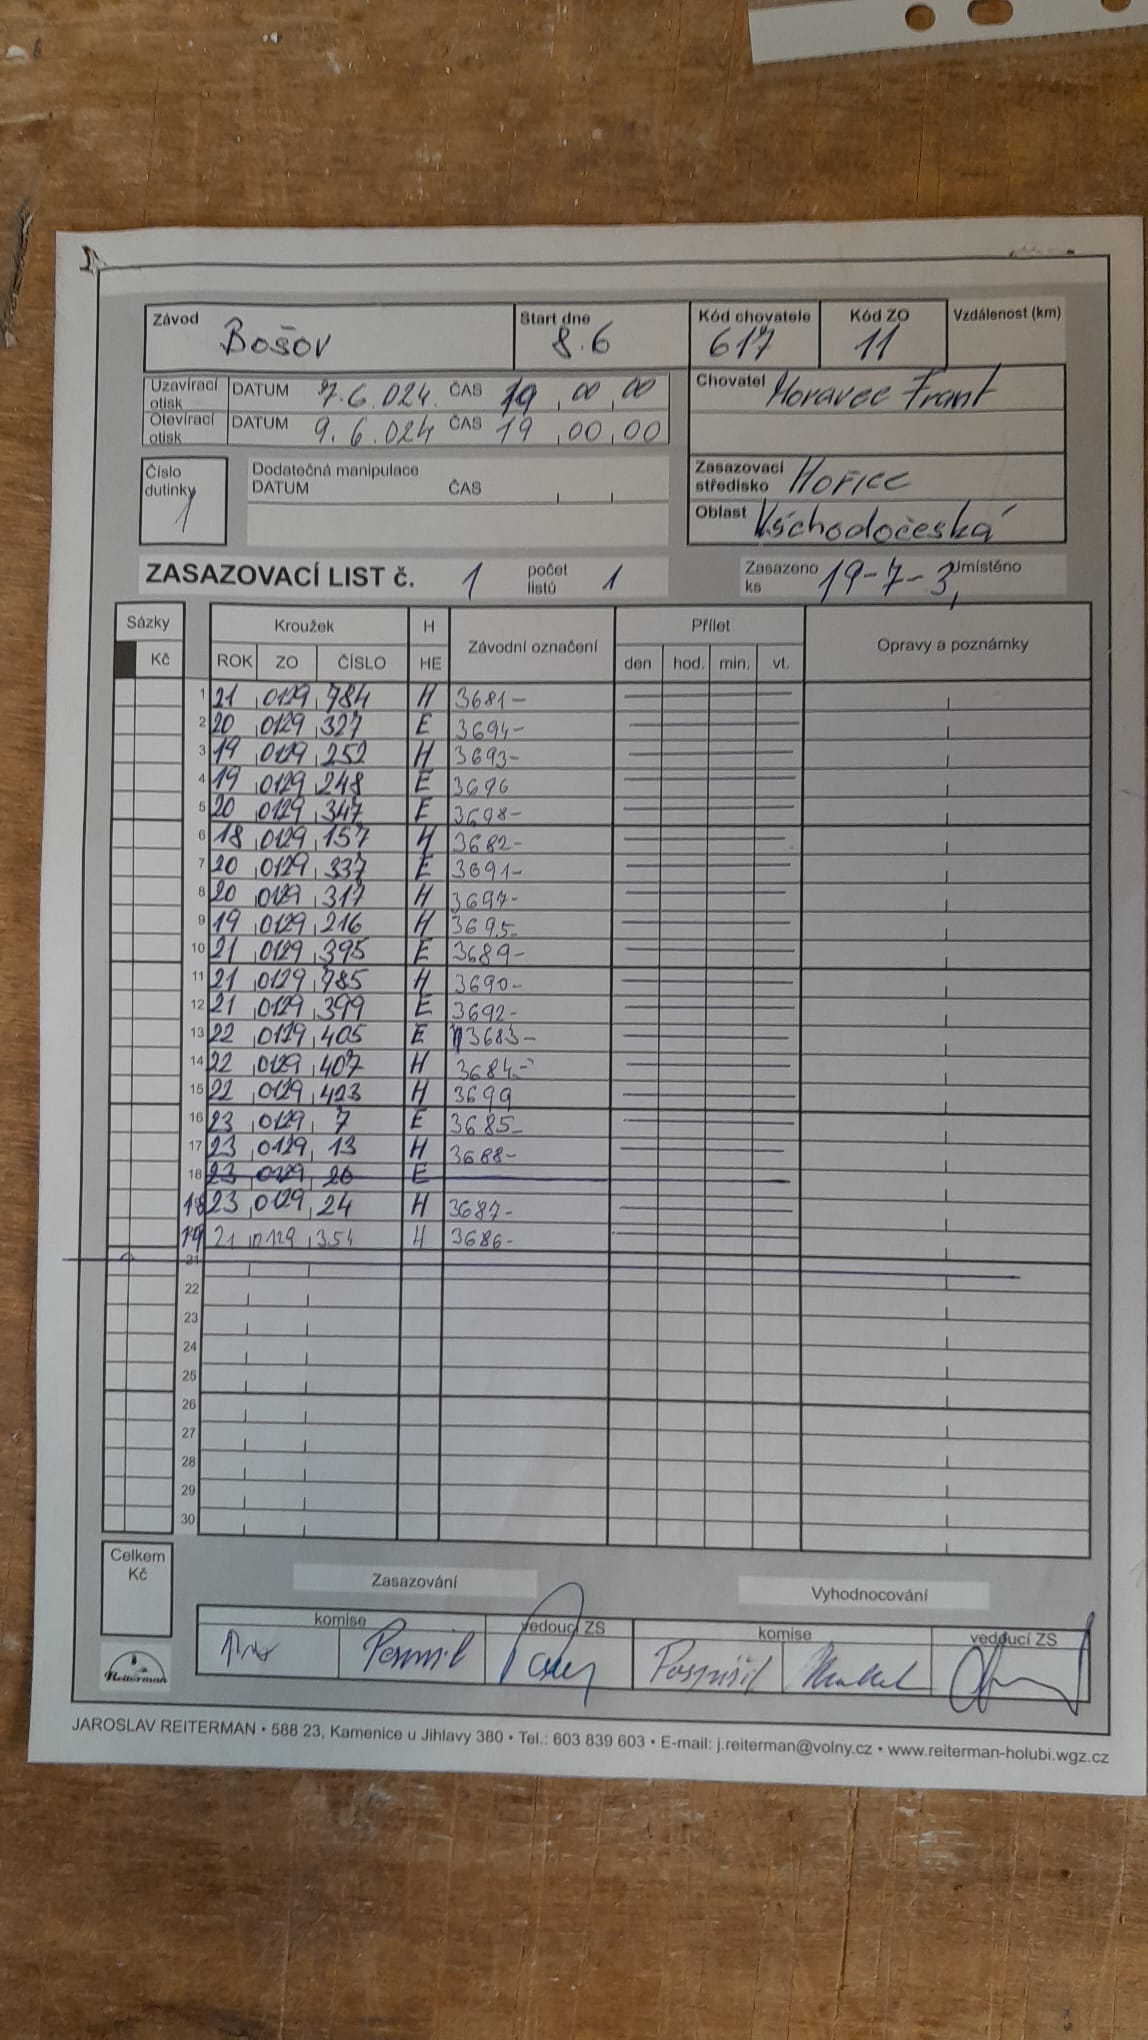 Závod Bošov Start dne 8.6 Kód chovatele 617 Kód ZO 11 Vzdálenost (km)
Uzavírací otisk DATUM 7.6.024. ČAS 19,00,00 Chovatel Moravec Frant
Otevírací otisk DATUM 9.6.024 ČAS 19,00,00
Číslo dutinky 1 Dodatečná manipulace DATUM ČAS Zasazovací středisko Hořice
Oblast Východočeská
ZASAZOVACÍ LIST č. 1 počet listů 1 Zasazeno ks 19-7-3, Umístěno
Sázky Kroužek H Závodní označení Přílet Opravy a poznámky
Kč ROK ZO ČÍSLO HE den hod. min. vt.
1 21 0129 984 H 3681-
2 20 0129 327 E 3694-
3 19 0129 252 H 3693-
4 19 0129 248 E 3696
5 20 0129 347 E 3698-
6 18 0129 157 H 3682-
7 20 0129 337 E 3691-
8 20 0129 317 H 3697-
9 19 0129 216 H 3695-
10 21 0129 395 E 3689-
11 21 0129 985 H 3690-
12 21 0129 399 E 3692-
13 22 0129 405 E 3683-
14 22 0129 407 H 3684-
15 22 0129 423 H 3699
16 23 0129 7 E 3685-
17 23 0129 13 H 3688-
18 23 0129 26 E
18 23 0129 24 H 3687-
19 21 0129 354 H 3686-
21
22
23
24
25
26
27
28
29
30
Celkem Kč Zasazování Vyhodnocování
komise vedoucí ZS komise vedoucí ZS
Pospíšil
Reiterman
JAROSLAV REITERMAN • 588 23, Kamenice u Jihlavy 380 • Tel.: 603 839 603 • E-mail: j.reiterman@volny.cz • www.reiterman-holubi.wgz.cz